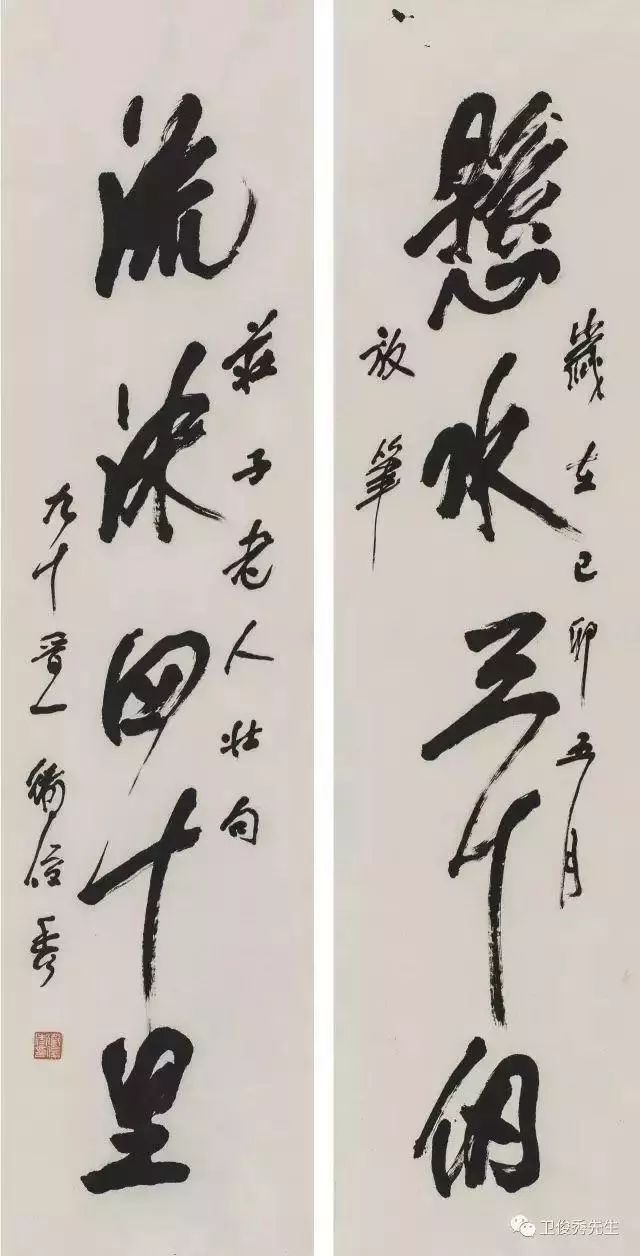 歲在己卯五月
懸水三十仞
放筆
莊子老人壯句
流沫四十里
九十晉一衛俊秀
卫俊秀先生